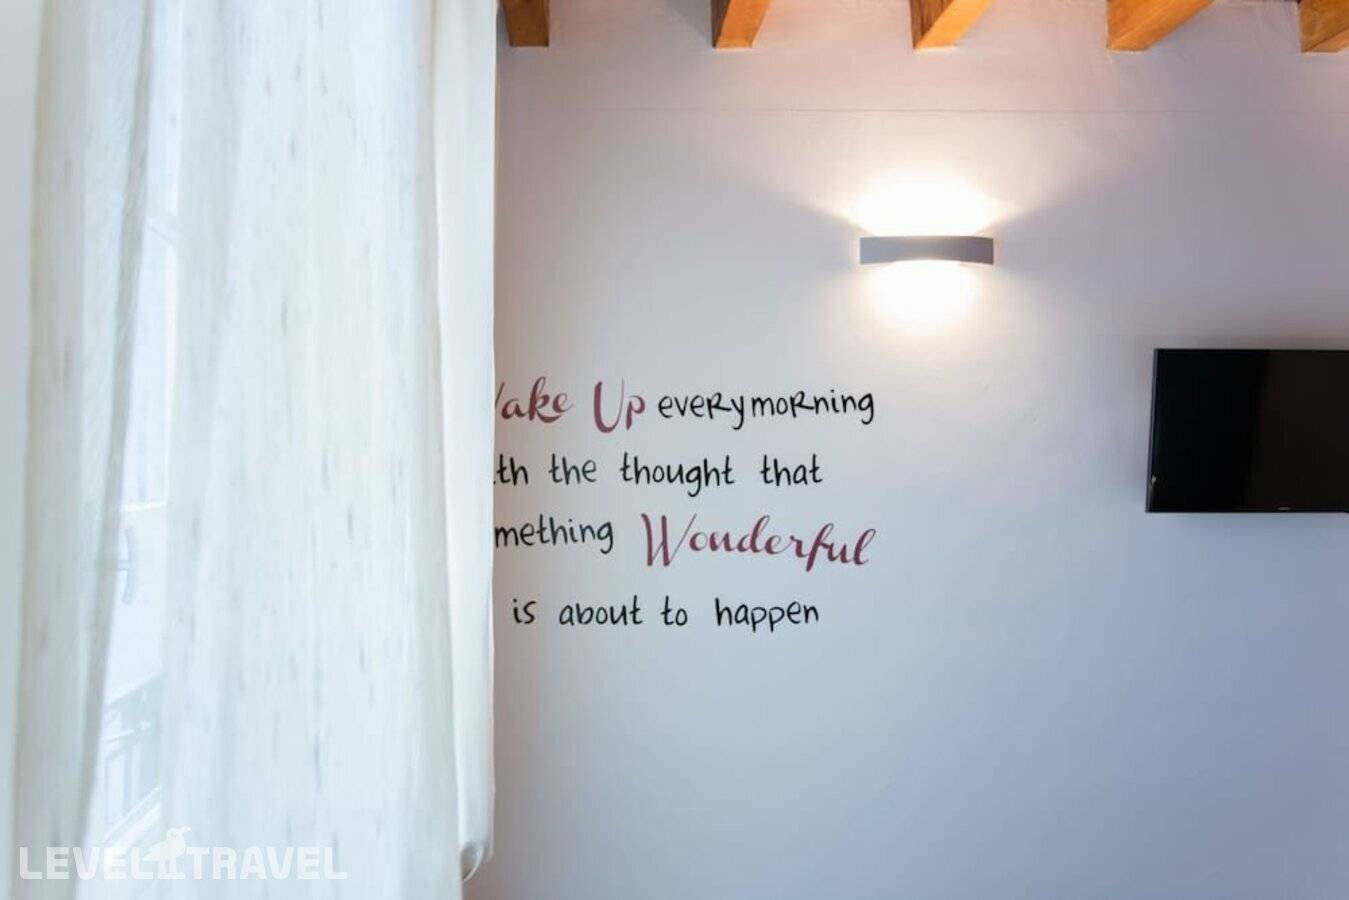 ake Up everymorning
th the thought that
mething Wonderful
is about to happen
LEVEL TRAVEL